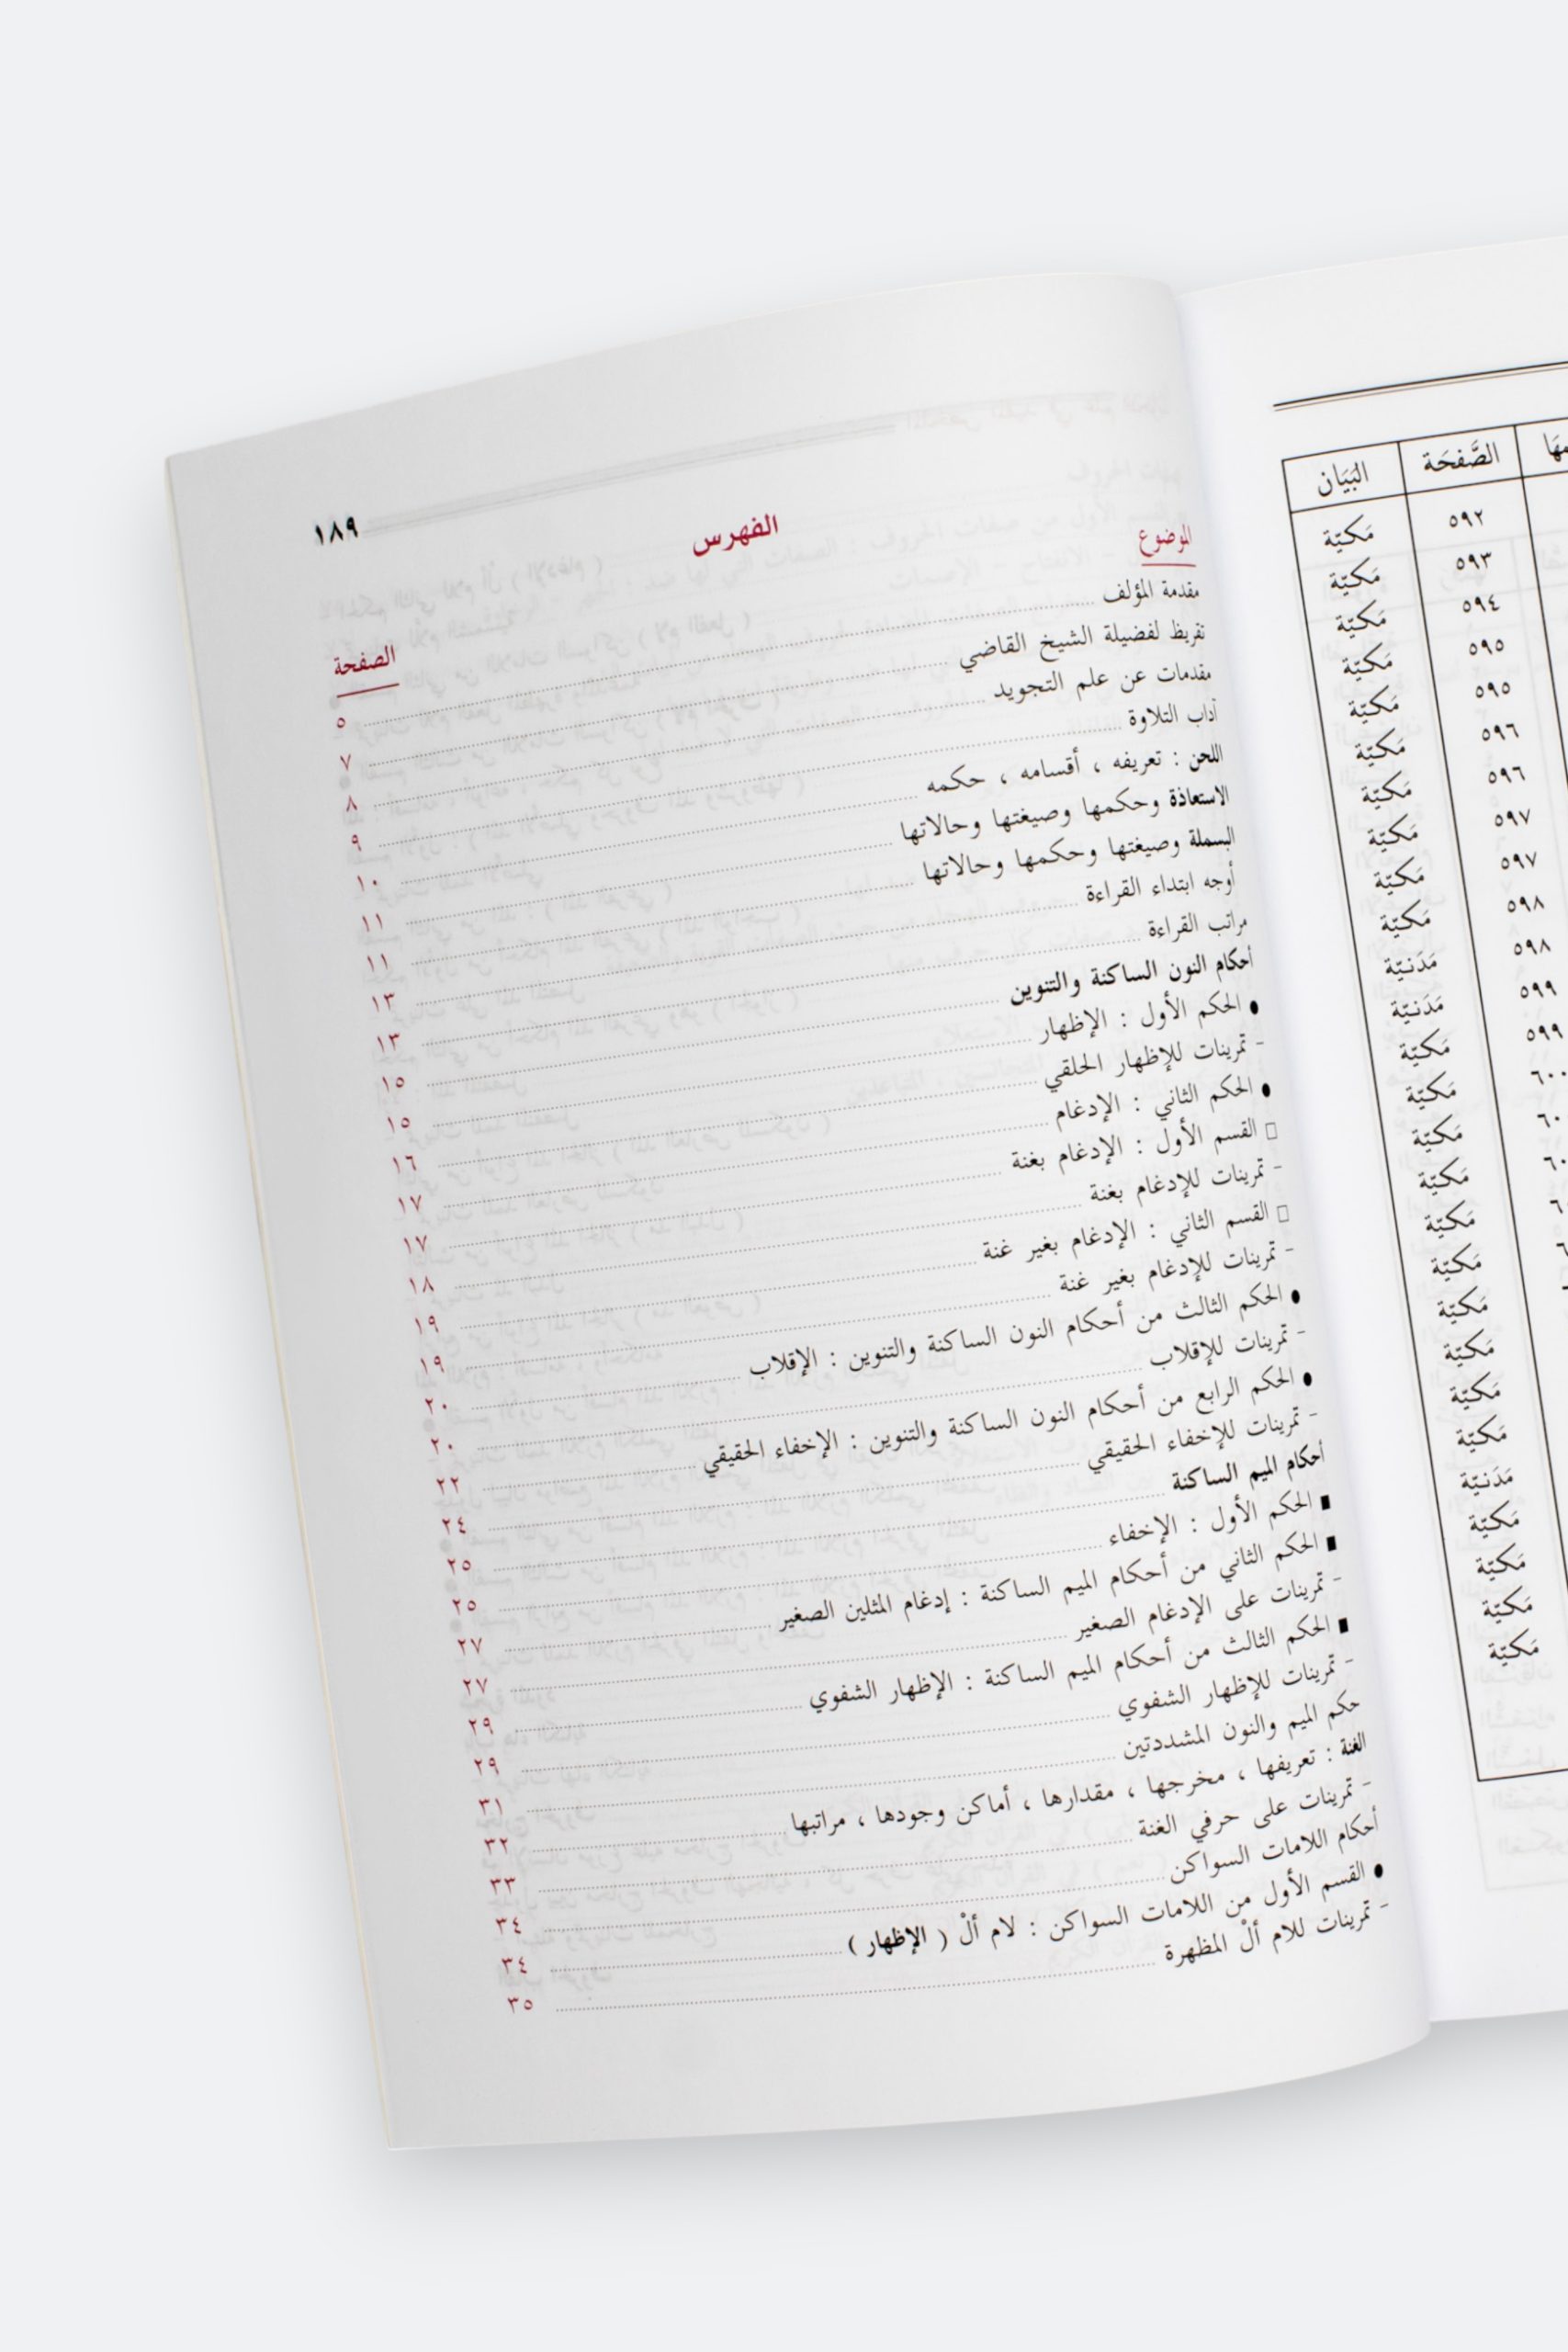 البَيَان الصَّفحَة
مَكيّة ٥٩٢
مَكيّة ٥٩٣
مَكيّة ٥٩٤
مَكيّة ٥٩٥
مَكيّة ٥٩٥
مَكيّة ٥٩٦
مَكيّة ٥٩٦
مَكيّة ٥٩٧
مَكيّة ٥٩٧
مَكيّة ٥٩٨
مَدَنيّة ٥٩٨
مَدَنيّة ٥٩٩
مَكيّة ٥٩٩
مَكيّة ٦٠٠
مَكيّة
مَكيّة
مَكيّة
مَكيّة
مَكيّة
مَكيّة
مَكيّة
مَكيّة
مَدَنيّة
مَكيّة
مَكيّة
مَكيّة
مَكيّة
١٨٩
الفهرس
الموضوع الصفحة
مقدمة المؤلف ٥
تقريظ لفضيلة الشيخ القاضي ٧
مقدمات عن علم التجويد ٨
آداب التلاوة ٩
اللحن : تعريفه ، أقسامه ، حكمه ١٠
الاستعاذة وحكمها وصيغتها وحالاتها ١١
البسملة وصيغتها وحكمها وحالاتها ١١
أوجه ابتداء القراءة ١٣
مراتب القراءة ١٣
أحكام النون الساكنة والتنوين ١٥
● الحكم الأول : الإظهار ١٥
- تمرينات للإظهار الحلقي ١٦
● الحكم الثاني : الإدغام ١٧
□ القسم الأول : الإدغام بغنة ١٧
- تمرينات للإدغام بغنة ١٨
□ القسم الثاني : الإدغام بغير غنة ١٩
- تمرينات للإدغام بغير غنة ١٩
● الحكم الثالث من أحكام النون الساكنة والتنوين : الإقلاب ٢٠
- تمرينات للإقلاب ٢٠
● الحكم الرابع من أحكام النون الساكنة والتنوين : الإخفاء الحقيقي ٢٢
- تمرينات للإخفاء الحقيقي ٢٤
أحكام الميم الساكنة ٢٥
■ الحكم الأول : الإخفاء ٢٥
■ الحكم الثاني من أحكام الميم الساكنة : إدغام المثلين الصغير ٢٧
- تمرينات على الإدغام الصغير ٢٧
■ الحكم الثالث من أحكام الميم الساكنة : الإظهار الشفوي ٢٩
- تمرينات للإظهار الشفوي ٢٩
حكم الميم والنون المشددتين ٣١
الغنة : تعريفها ، مخرجها ، مقدارها ، أماكن وجودها ، مراتبها ٣٢
- تمرينات على حرفي الغنة ٣٣
أحكام اللامات السواكن ٣٤
● القسم الأول من اللامات السواكن : لام ألْ ( الإظهار ) ٣٤
- تمرينات للام ألْ المظهرة ٣٥